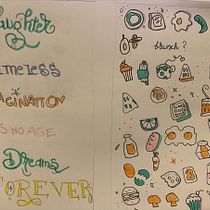 Laughter
TIMELESS
IMAGINATION
HAS NO AGE
Dreams
FOREVER
brunch?